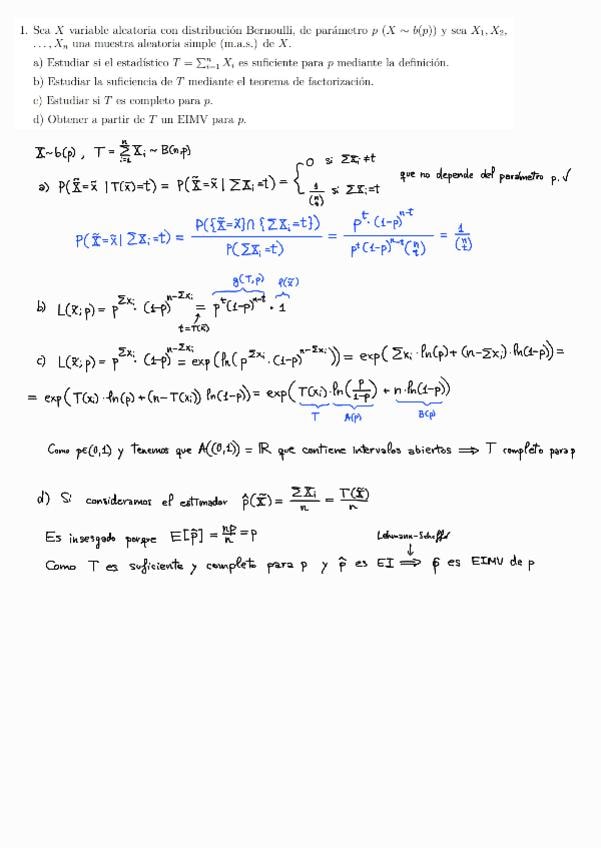 1. Sea X variable aleatoria con distribución Bernoulli, de parámetro p (X ∼ b(p)) y sea X₁, X₂,
…, Xₙ una muestra aleatoria simple (m.a.s.) de X.
a) Estudiar si el estadístico T = ∑ⁿᵢ₌₁ Xᵢ es suficiente para p mediante la definición.
b) Estudiar la suficiencia de T mediante el teorema de factorización.
c) Estudiar si T es completo para p.
d) Obtener a partir de T un EIMV para p.
X~b(p) , T = ∑ⁿᵢ₌₁ Xᵢ ~ B(n,p)
a) P(X̃=x̃ | T(x̃)=t) = P(X̃=x̃ | ∑Xᵢ=t) = { 0 si ∑Xᵢ≠t
1/(n t) si ∑Xᵢ=t
que no depende del parámetro p. ✓
P(X̃=x̃ | ∑Xᵢ=t) = P({X̃=x̃}∩{∑Xᵢ=t}) / P(∑Xᵢ=t) = p^t·(1-p)^(n-t) / p^t(1-p)^(n-t)(n t) = 1/(n t)
g(T,p) h(x̃)
b) L(x̃;p) = p^(∑xᵢ)·(1-p)^(n-∑xᵢ) = p^t(1-p)^(n-t) · 1
t=T(x̃)
c) L(x̃;p) = p^(∑xᵢ)·(1-p)^(n-∑xᵢ) = exp(ln(p^(∑xᵢ)·(1-p)^(n-∑xᵢ))) = exp(∑xᵢ·ln(p)+(n-∑xᵢ)·ln(1-p)) =
= exp(T(xᵢ)·ln(p)+(n-T(xᵢ))ln(1-p)) = exp(T(xᵢ)·ln(p/(1-p)) + n·ln(1-p))
T A(p) B(p)
Como p∈(0,1) y tenemos que A((0,1)) = ℝ que contiene intervalos abiertos ⟹ T completo para p
d) Si consideramos el estimador p̂(X̃) = ∑Xᵢ/n = T(X̃)/n
Es insesgado porque E[p̂] = np/n = p
Lehmann-Scheffé
↓
Como T es suficiente y completo para p y p̂ es EI ⟹ p̂ es EIMV de p